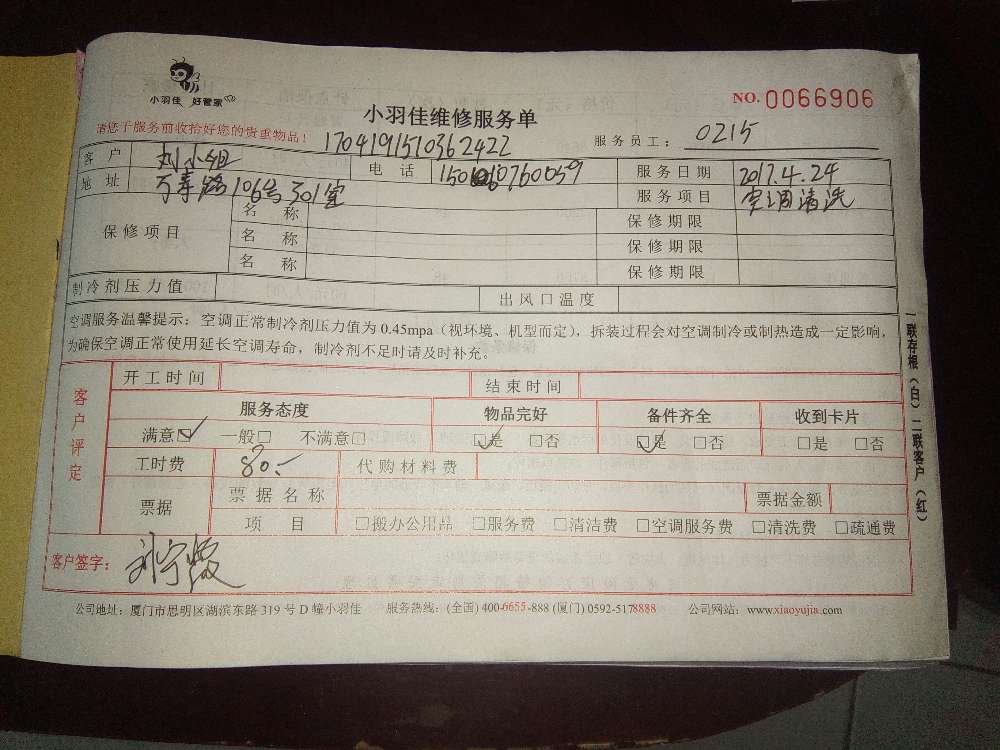 小羽佳 好管家
NO. 0066906
小羽佳维修服务单
请您于服务前收拾好您的贵重物品！
1704191510362422
服务员工： 0215
客户 刘小姐 电话 服务日期 2017.4.24
地址 万寿路106号301室 服务项目 空调清洗
保修项目 名称 保修期限
名称 保修期限
名称 保修期限
制冷剂压力值 出风口温度
空调服务温馨提示：空调正常制冷剂压力值为0.45mpa（视环境、机型而定），拆装过程会对空调制冷或制热造成一定影响，
为确保空调正常使用延长空调寿命，制冷剂不足时请及时补充。
客户评定
开工时间 结束时间
服务态度 物品完好 备件齐全 收到卡片
满意☑ 一般□ 不满意□ ☑是 □否 ☑是 □否 □是 □否
工时费 80.- 代购材料费
票据 票据名称 票据金额
项目 □搬办公用品 □服务费 □清洁费 □空调服务费 □清洗费 □疏通费
客户签字：
公司地址：厦门市思明区湖滨东路319号D幢小羽佳 服务热线：(全国) 400-6655-888 (厦门) 0592-5178888 公司网站：www.xiaoyujia.com
一联存根（白）二联客户（红）